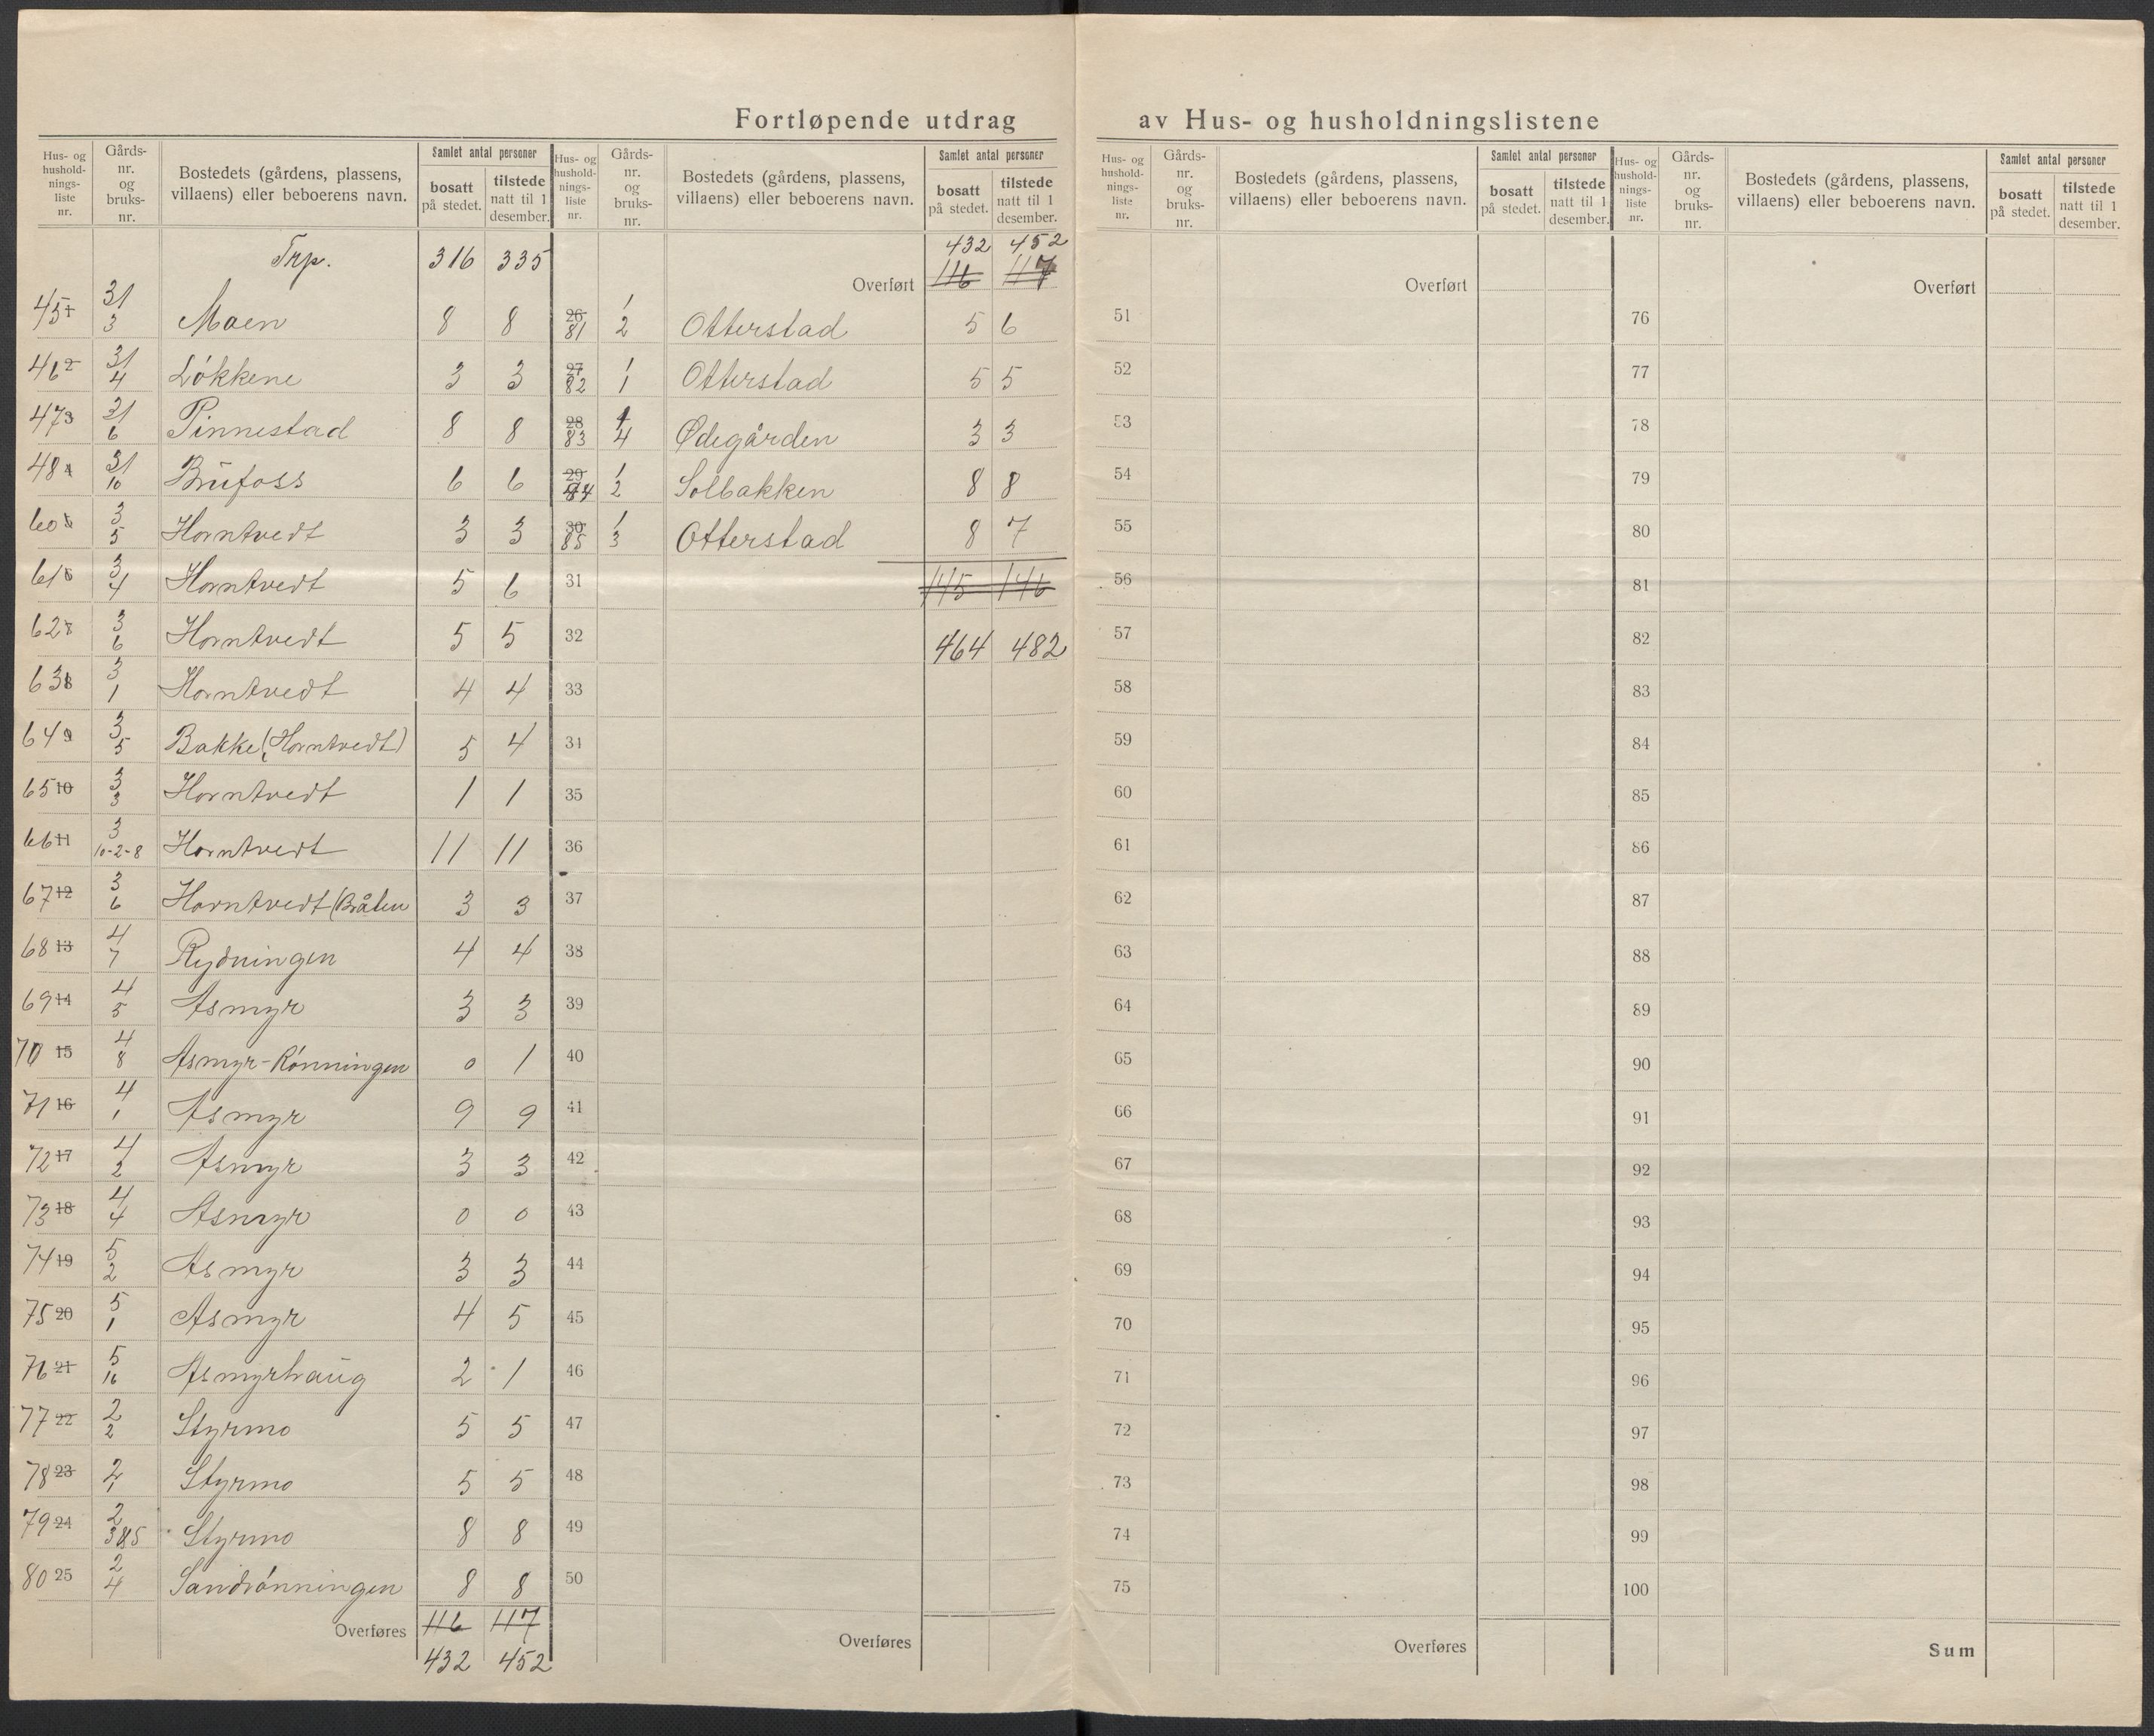 Fortløpende utdrag av Hus- og husholdningslistene
Hus- og husholdningsliste nr. | Gårds-nr. og bruks-nr. | Bostedets (gårdens, plassens, villaens) eller beboerens navn. | Samlet antal personer | bosatt på stedet. | tilstede natt til 1 desember.
Trp. 316 335
45 1 31 3 Moen 8 8
46 2 31 4 Løkkene 3 3
47 3 31 6 Pinnestad 8 8
48 4 31 10 Brufoss 6 6
60 5 3 5 Horntvedt 3 3
61 6 3 4 Horntvedt 5 6
62 7 3 6 Horntvedt 5 5
63 8 3 1 Horntvedt 4 4
64 9 3 5 Bakke (Horntvedt) 5 4
65 10 3 3 Horntvedt 1 1
66 11 3 10-2-8 Horntvedt 11 11
67 12 3 6 Horntvedt (Bråten 3 3
68 13 4 7 Rydningen 4 4
69 14 4 5 Asmyr 3 3
70 15 4 8 Asmyr-Rónningen 0 1
71 16 4 1 Asmyr 9 9
72 17 4 2 Asmyr 3 3
73 18 4 4 Asmyr 0 0
74 19 5 2 Asmyr 3 3
75 20 5 1 Asmyr 4 5
76 21 5 16 Asmyrhaug 2 1
77 22 2 2 Styrmo 5 5
78 23 2 1 Styrmo 5 5
79 24 2 3&5 Styrmo 8 8
80 25 2 4 Sandrónningen 8 8
Overføres 116 117
432 452
Hus- og husholdningsliste nr. | Gårds-nr. og bruks-nr. | Bostedets (gårdens, plassens, villaens) eller beboerens navn. | Samlet antal personer | bosatt på stedet. | tilstede natt til 1 desember.
432 452
Overført 116 117
26 81 1 2 Otterstad 5 6
27 82 1 1 Otterstad 5 5
28 83 1 4 Ødegården 3 3
29 84 1 2 Solbakken 8 8
30 85 1 3 Otterstad 8 7
31 145 146
32 464 482
33
34
35
36
37
38
39
40
41
42
43
44
45
46
47
48
49
50
Overføres
Hus- og husholdningsliste nr. | Gårds-nr. og bruks-nr. | Bostedets (gårdens, plassens, villaens) eller beboerens navn. | Samlet antal personer | bosatt på stedet. | tilstede natt til 1 desember.
Overført
51
52
53
54
55
56
57
58
59
60
61
62
63
64
65
66
67
68
69
70
71
72
73
74
75
Overføres
Hus- og husholdningsliste nr. | Gårds-nr. og bruks-nr. | Bostedets (gårdens, plassens, villaens) eller beboerens navn. | Samlet antal personer | bosatt på stedet. | tilstede natt til 1 desember.
Overført
76
77
78
79
80
81
82
83
84
85
86
87
88
89
90
91
92
93
94
95
96
97
98
99
100
Sum